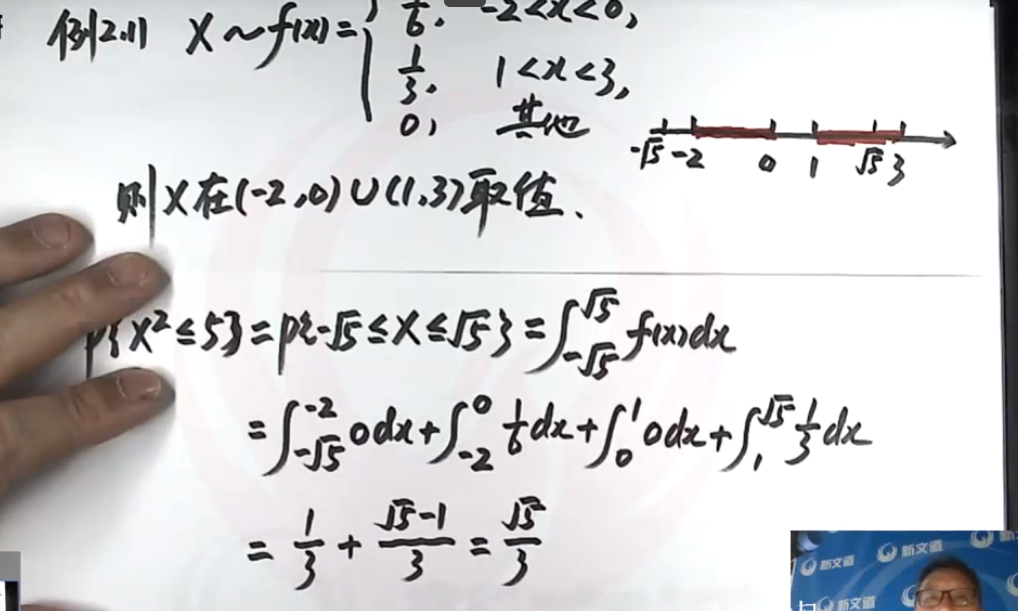 例2.11 X~f(x)= 1/6, -2<x<0,
1/3, 1<x<3,
0, 其他
-√5 -2 0 1 √5 3
则X在(-2,0)∪(1,3)取值.
P{X²≤5}=P{-√5≤X≤√5}=∫_{-√5}^{√5} f(x)dx
=∫_{-√5}^{-2} 0dx+∫_{-2}^{0} 1/6 dx+∫_{0}^{1} 0dx+∫_{1}^{√5} 1/3 dx
= 1/3 + (√5-1)/3 = √5/3
新文道 新文道
新文道